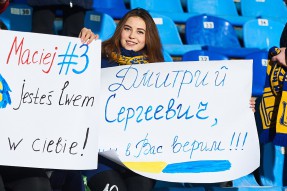 Maciej #3
jesteś lwem
w ciebie!
Дмитрий
Сергеевич,
в Вас верим!!!